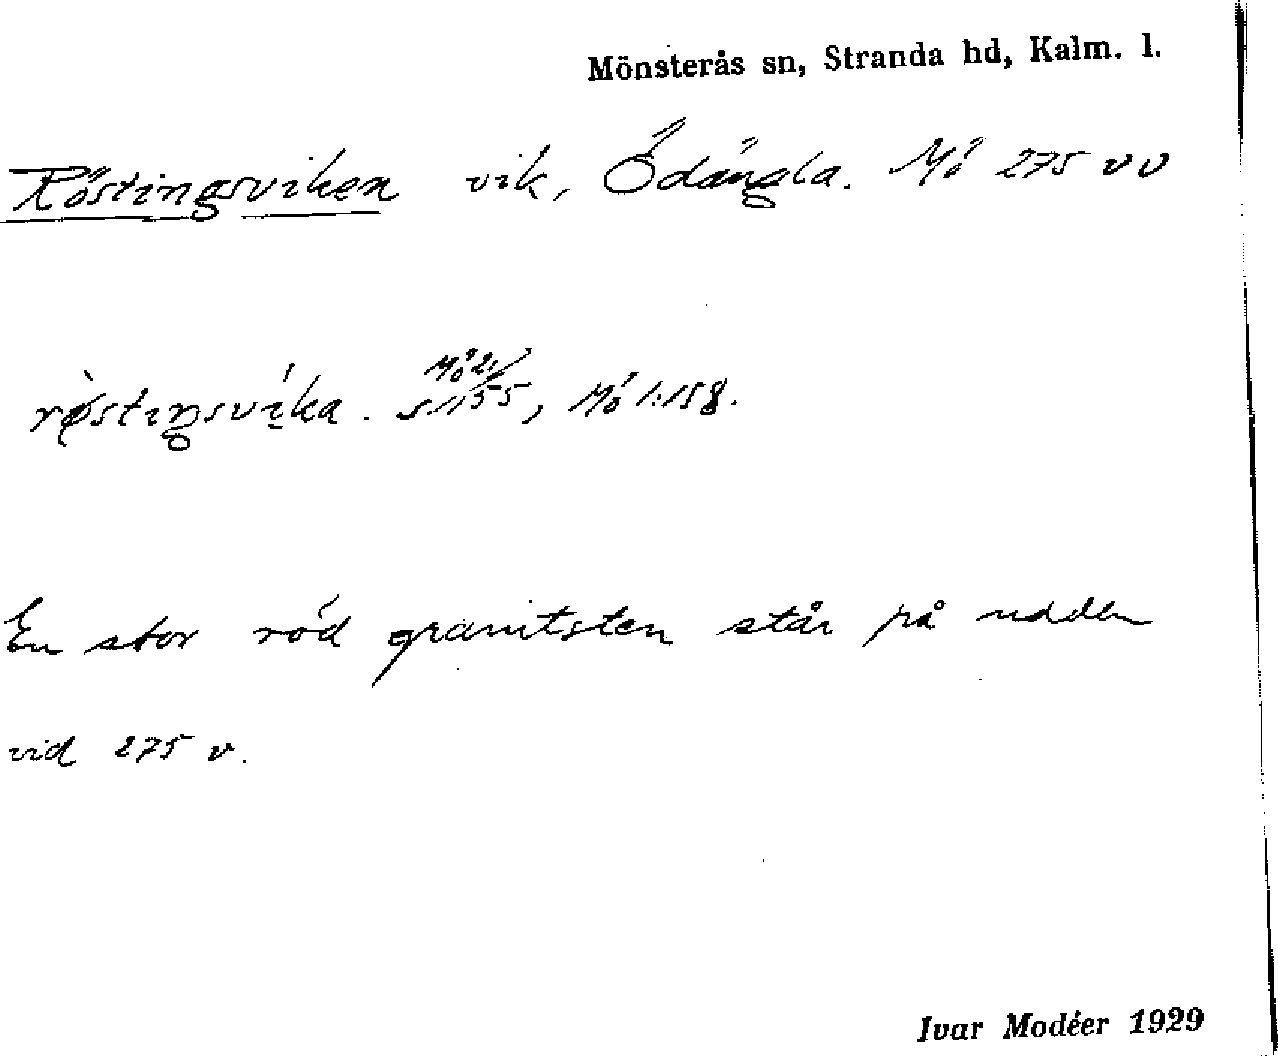 Mönsterås sn, Stranda hd, Kalm. l.
Röstingsviken vik, Ödängla. Mö 275 v v
rø̀stiŋsvíka. Mö 2:/155, Mö 1:158.
En stor röd granitsten står på udden
vid 275 v.
Ivar Modéer 1929